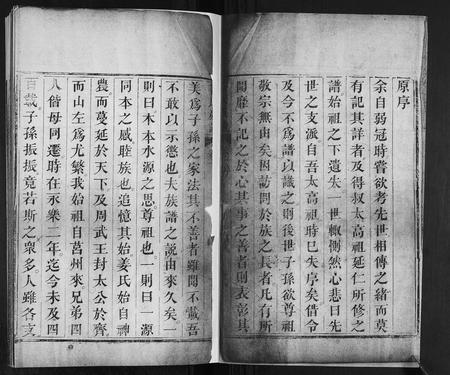 原序
余自弱冠時嘗欲考先世相傳之緒而莫
有記其詳者及得叔太高祖延仁所修之
譜始祖之下遺失一世輙惻然心悲曰先
世之支派自吾太高祖時已失序矣借令
及今不爲譜以識之則後世子孫欲尊祖
敬宗無由矣因訪問於族之長者凡有所
聞靡不記之於心其事之善者則表彰其
美爲子孫之家法其不善者雖聞不載吾
不敢以示懲也夫族譜之說由來久矣一
則曰木本水源之思尊祖也一則曰一源
同本之戚睦族也追憶其始姜氏始自神
農而蔓延於天下及周武王封太公於齊
而山左爲尤繁我始祖自莒州來兄弟四
人偕母同遷時在永樂二年迄今未及四
百載子孫振振竟若斯之衆多人雖各支